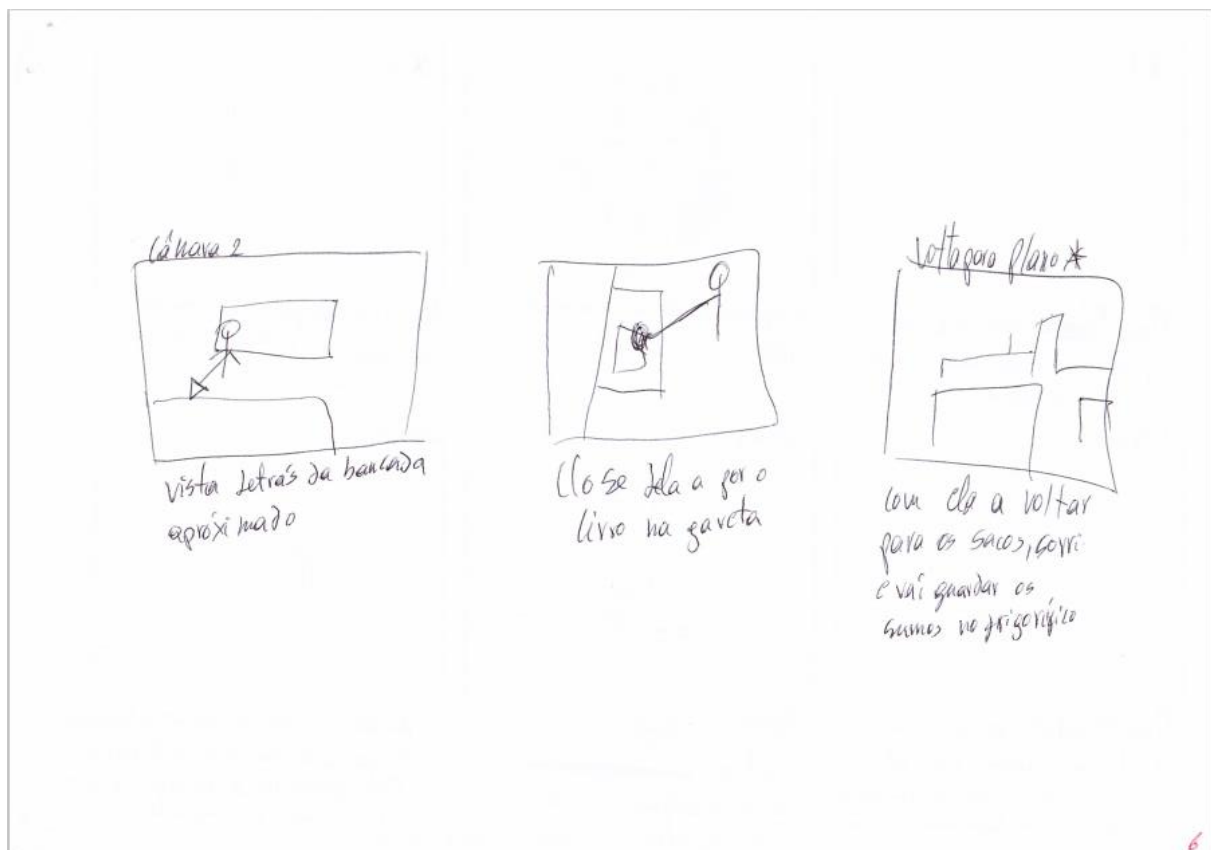 Câmara 2
vista detrás da bancada
apróximado
Close dela a por o
livro na gaveta
Volta para plano *
com ela a voltar
para os sacos, sorri
e vai guardar os
sumos no frigorífico
6